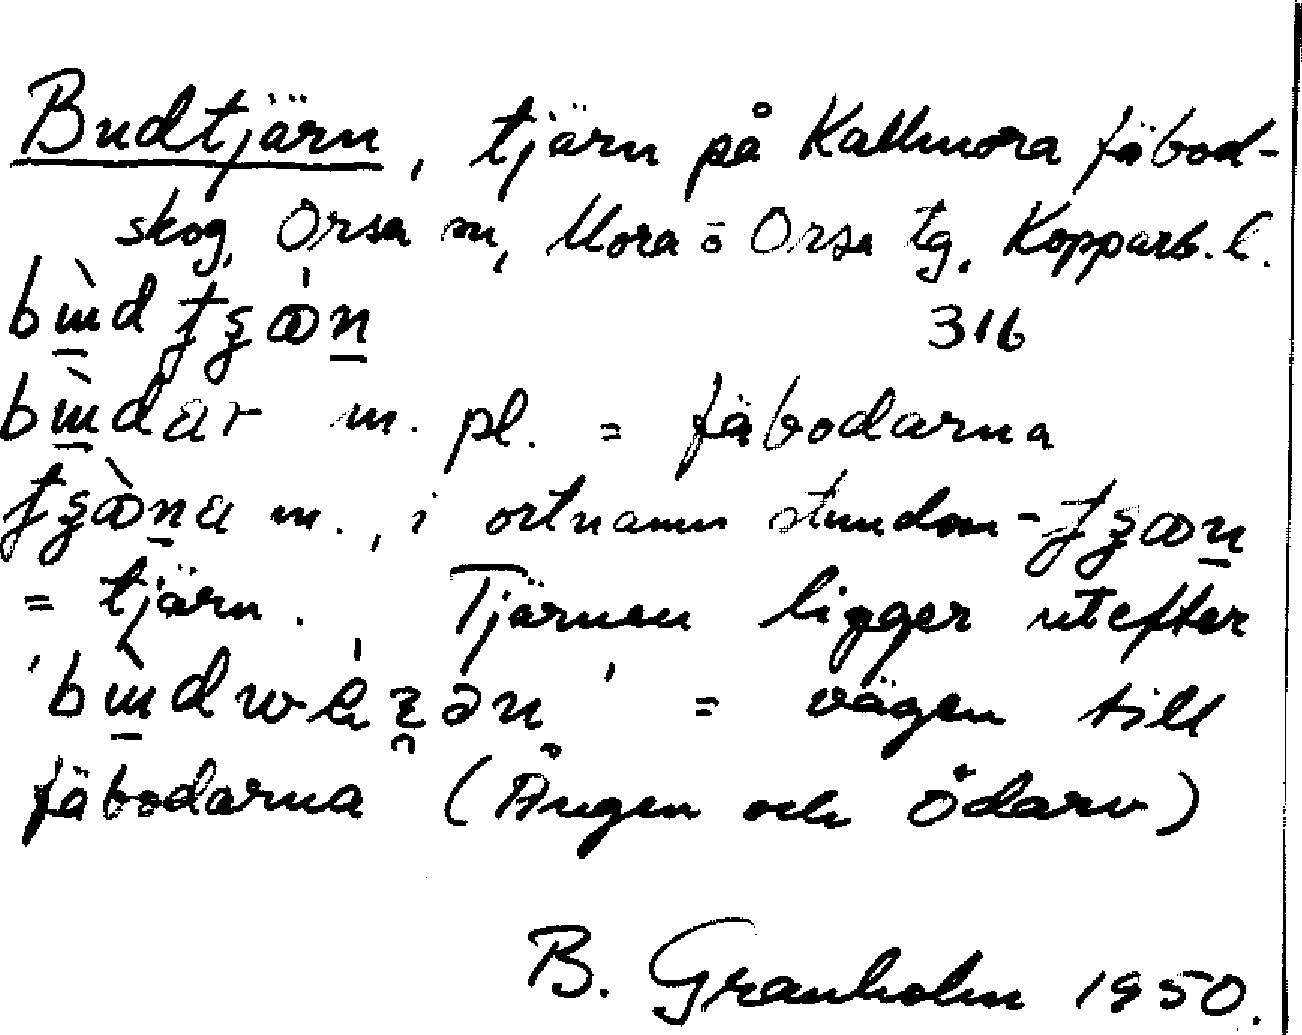 Budtjärn, tjärn på Kallmora fäbod-
skog, Orsa sn, Mora o Orsa tg. Kopparb. l.
316
m. pl. = fäbodarna
m., i ortnamn stundom -
= tjärn. Tjärnen ligger utefter
= vägen till
fäbodarna (Ängen och Ödarv)
B. Granholm 1950.